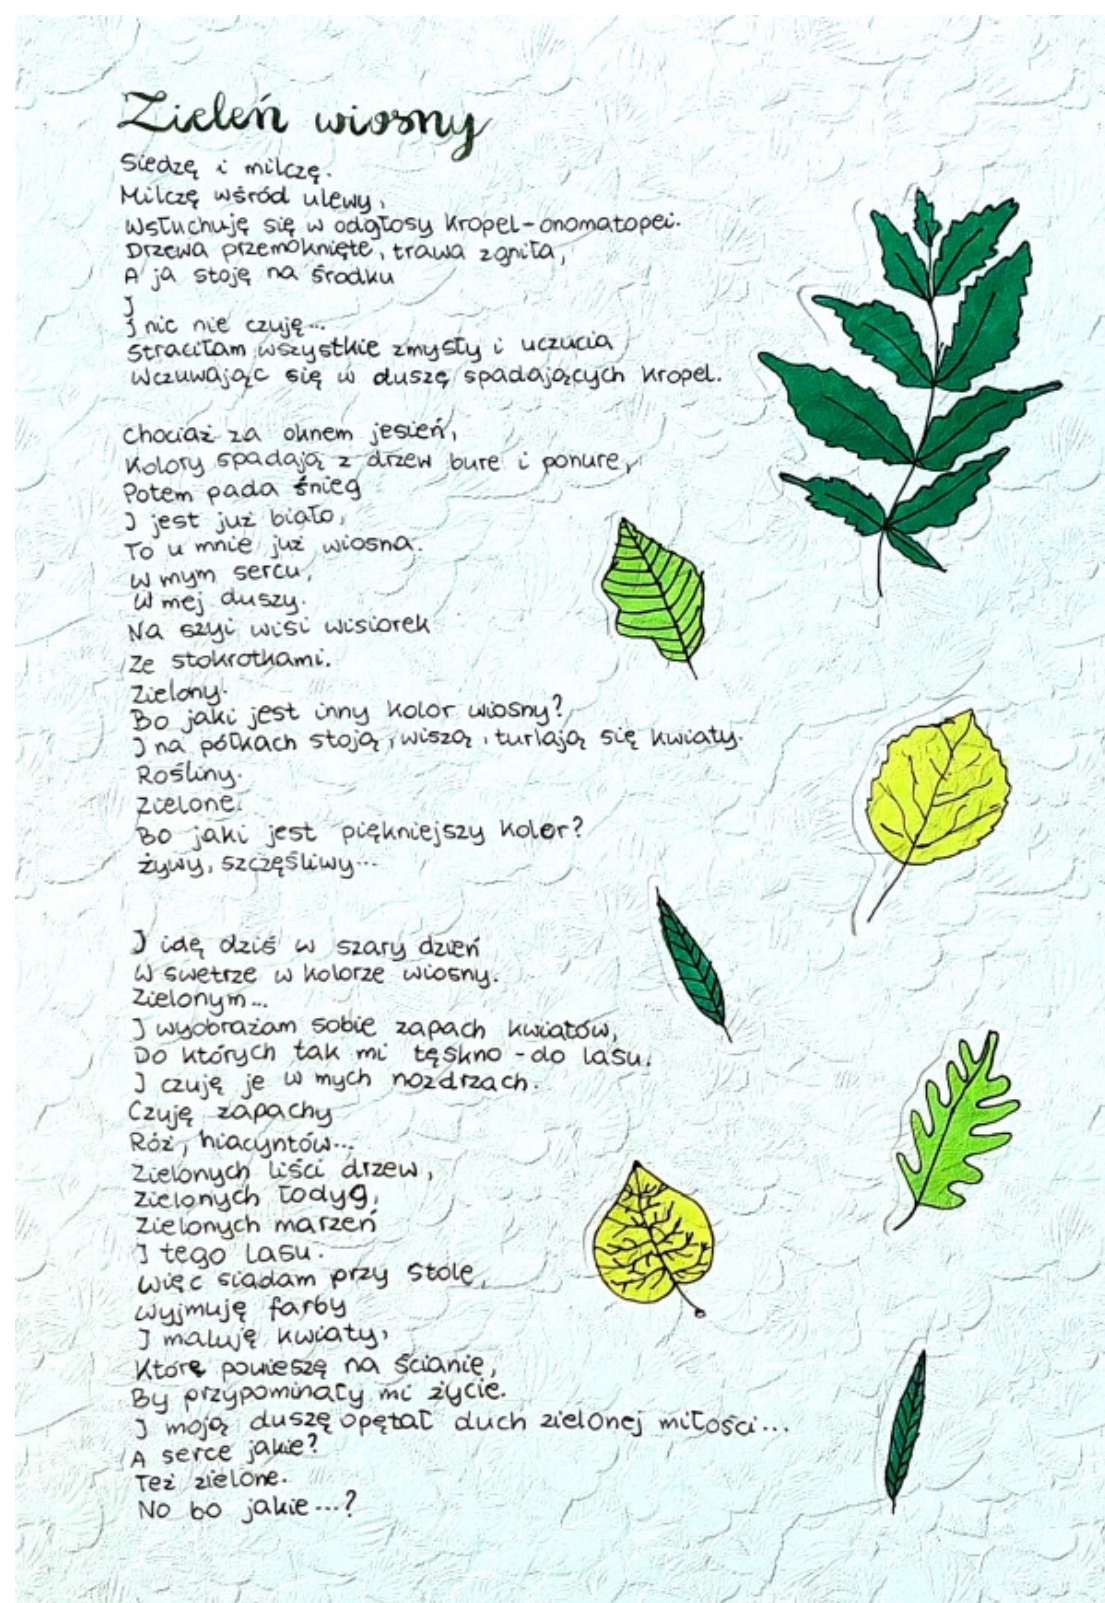 Zieleń wiosny
Siedzę i milczę.
Milczę wśród ulewy,
Wsłuchuję się w odgłosy kropel-onomatopei.
Drzewa przemoknięte, trawa zgniła,
A ja stoję na środku
I
I nic nie czuję...
Straciłam wszystkie zmysły i uczucia
Wczuwając się w duszę spadających kropel.
Chociaż za oknem jesień,
Kolory spadają z drzew bure i ponure,
Potem pada śnieg
I jest już biało,
To u mnie już wiosna.
W mym sercu,
W mej duszy.
Na szyi wisi wisiorek
Ze stokrotkami.
Zielony.
Bo jaki jest inny kolor wiosny?
I na półkach stoją, wiszą, turlają się kwiaty.
Rośliny.
Zielone.
Bo jaki jest piękniejszy kolor?
Żywy, szczęśliwy...
I idę dziś w szary dzień
W swetrze w kolorze wiosny.
Zielonym...
I wyobrażam sobie zapach kwiatów,
Do których tak mi tęskno - do lasu.
I czuję je w mych nozdrzach.
Czuję zapachy
Róż, hiacyntów...
Zielonych liści drzew,
Zielonych łodyg,
Zielonych marzeń
I tego lasu.
Więc siadam przy stole,
Wyjmuję farby
I maluję kwiaty,
Które powieszę na ścianie,
By przypominały mi życie.
I moją duszę opętał duch zielonej miłości...
A serce jakie?
Też zielone.
No bo jakie...?